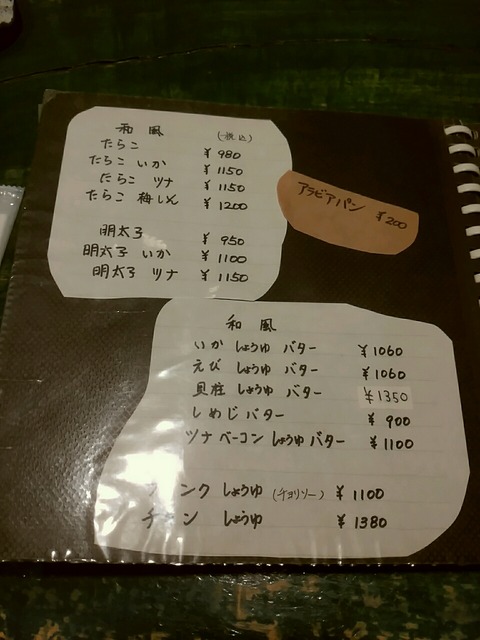 和風 (税込)
たらこ ¥980
たらこ いか ¥1150
たらこ ツナ ¥1150
たらこ 梅しそ ¥1200
明太子 ¥950
明太子 いか ¥1100
明太子 ツナ ¥1150
アラビアパン ¥200
和風
いか しょうゆ バター ¥1060
えび しょうゆ バター ¥1060
貝柱 しょうゆ バター ¥1350
しめじバター ¥900
ツナベーコン しょうゆ バター ¥1100
ンク しょうゆ (チョリソー) ¥1100
しょうゆ ¥1380